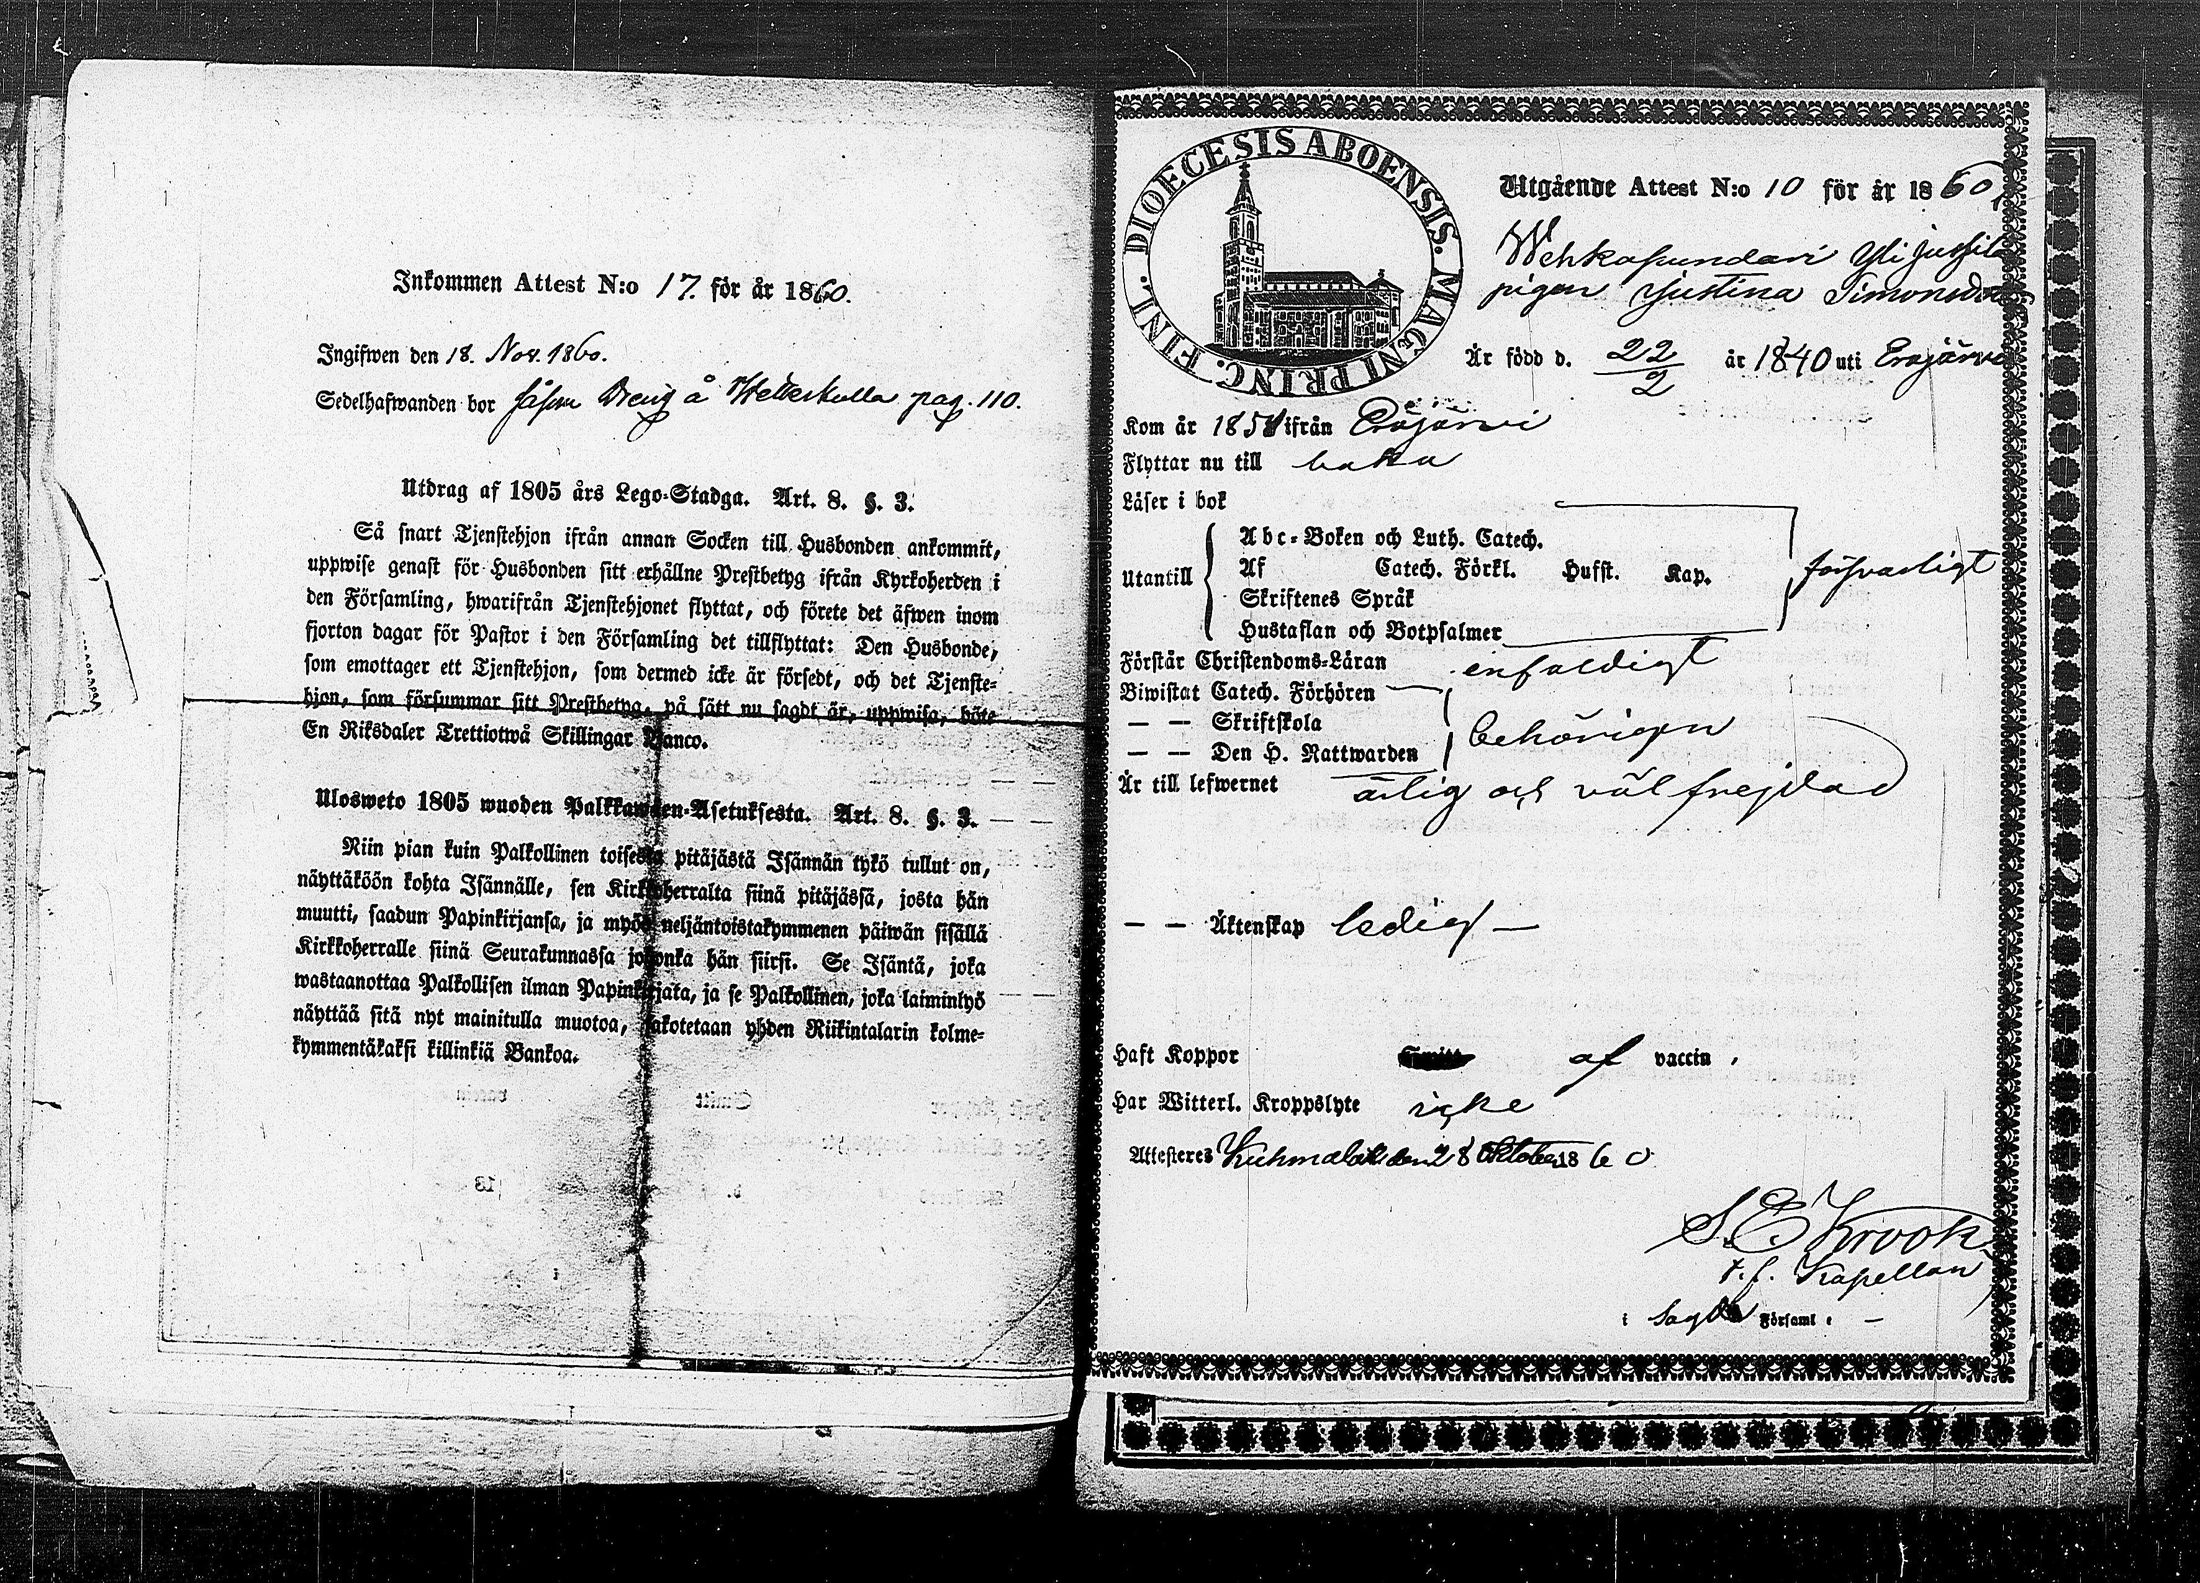 Inkommen Attest N:o 17. för år 1860.
Ingifwen den 18. Nov. 1860.
Sedelhafwanden bor såsom Dreng å pag. 110.
Utdrag af 1805 års Lego-Stadga. Art. 8. §. 3.
Så snart Tjenstehjon ifrån annan Socken till Husbonden ankommit,
uppwise genast för Husbonden sitt erhållne Prestbetyg ifrån Kyrkoherden i
den Församling, hwarifrån Tjenstehjonet flyttat, och förete det äfwen inom
fjorton dagar för Pastor i den Församling det tillflyttat: Den Husbonde,
som emottager ett Tjenstehjon, som dermed icke är försedt, och det Tjenste-
hjon, som försummar sitt Prestbetyg, på sätt nu sagdt är, uppwisa, böte
En Riksdaler Trettiotwå Skillingar Banco.
Ulosweto 1805 wuoden Palkkawäen-Asetuksesta. Art. 8. §. 3.
Niin pian kuin Palkollinen toisesta pitäjästä Isännän tykö tullut on,
näyttäköön kohta Isännälle, sen Kirkkoherralta siinä pitäjässä, josta hän
muutti, saadun Papinkirjansa, ja myös neljäntoistakymmenen päiwän sisällä
Kirkkoherralle siinä Seurakunnassa johonka hän siirsi. Se Isäntä, joka
wastaanottaa Palkollisen ilman Papinkirjata, ja se Palkollinen, joka laiminlyö
näyttää sitä nyt mainitulla muotoa, sakotetaan yhden Riikintalarin kolme-
kymmentäkaksi killinkiä Bankoa.
DIOECESIS ABOENSIS. MAGNI PRINC. FINL.
Utgående Attest N:o 10 för år 1860,
Wehkapundari Yli Jussila
pigan Justina Simonsdr
Är född d. 22/2 år 1840 uti Erajärvi
Kom år 1858 ifrån Eräjärvi
Flyttar nu till baka
Läser i bok
Utantill
Abc-Boken och Luth. Catech.
Af Catech. Förkl. Hufst. Kap. försvarligt
Skriftenes Språk
Hustaflan och Botpsalmer
Förstår Christendoms-Läran enfaldigt
Biwistat Catech. Förhören
— — Skriftskola behörigen
— — Den H. Nattwarden
Är till lefwernet ärlig och väl frejdad
— — Äktenskap ledig —
Haft Koppor af vaccin,
Har Witterl. Kroppslyte icke
Attesteres Kuhmalaks den 28 Oktober 1860
S. E. Krook
t.f. Kapellan
i sagda Församl: —